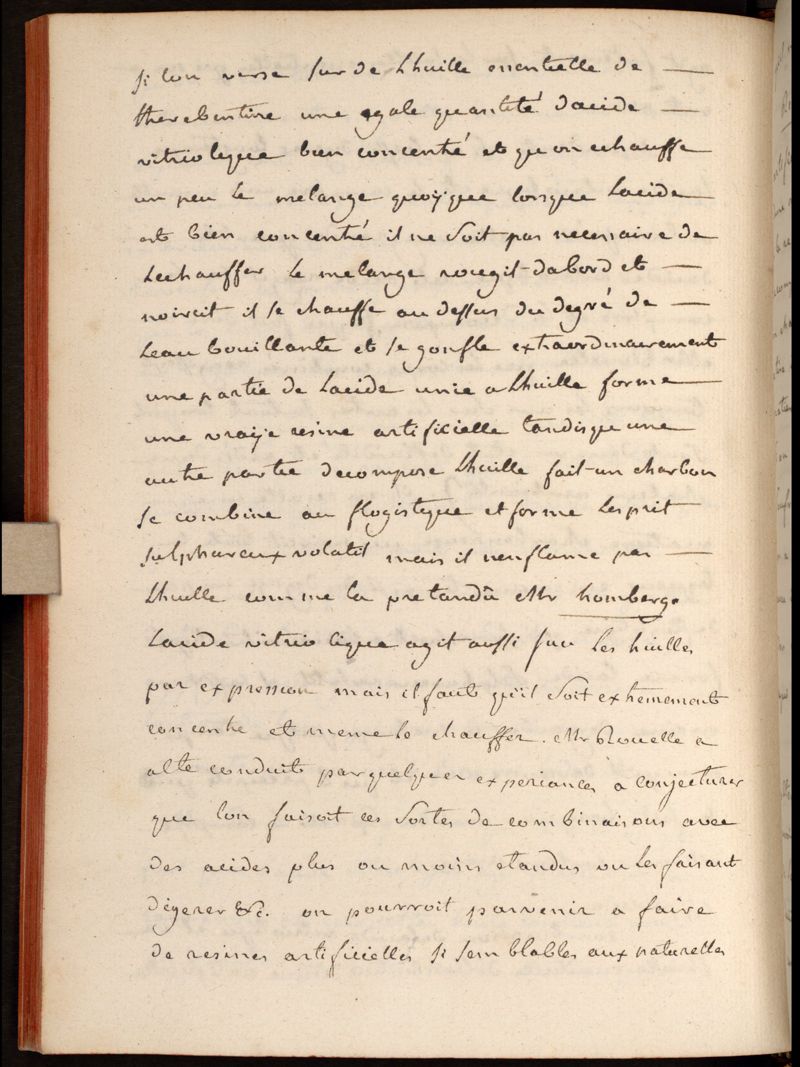 si lon verse sur de Lhuille essentielle de
therebentine une egale quantité dacide
vitriolique bien concentré et quon echauffe
un peu le melange quoyque lorsque Lacide
est bien concentré il ne soit pas necessaire de
Lechauffer le melange rougit dabord et
noircit il se chauffe au dessus du degré de
Leau bouillante et se gonfle extraordinairement
une partie de Lacide unie a Lhuille forme
une vraije resine artificielle tandisque une
autre partie decompose Lhuille fait un charbon
se combine au flogistique et forme Lesprit
sulphureux volatil mais il nenflame pas
Lhuille comme la pretandû Mr homberg.
Lacide vitriolique agit aussi sur Les huilles
par expression mais il faut quil soit extremement
concentré et meme le chauffer. Mr Rouelle a
eté conduit par quelques experiances a conjecturer
que lon faisoit ces sortes de combinaisons avec
des acides plus ou moins etandus ou Les faisant
digerer &c. on pourroit parvenir a faire
de resines artificielles si semblables aux naturelles